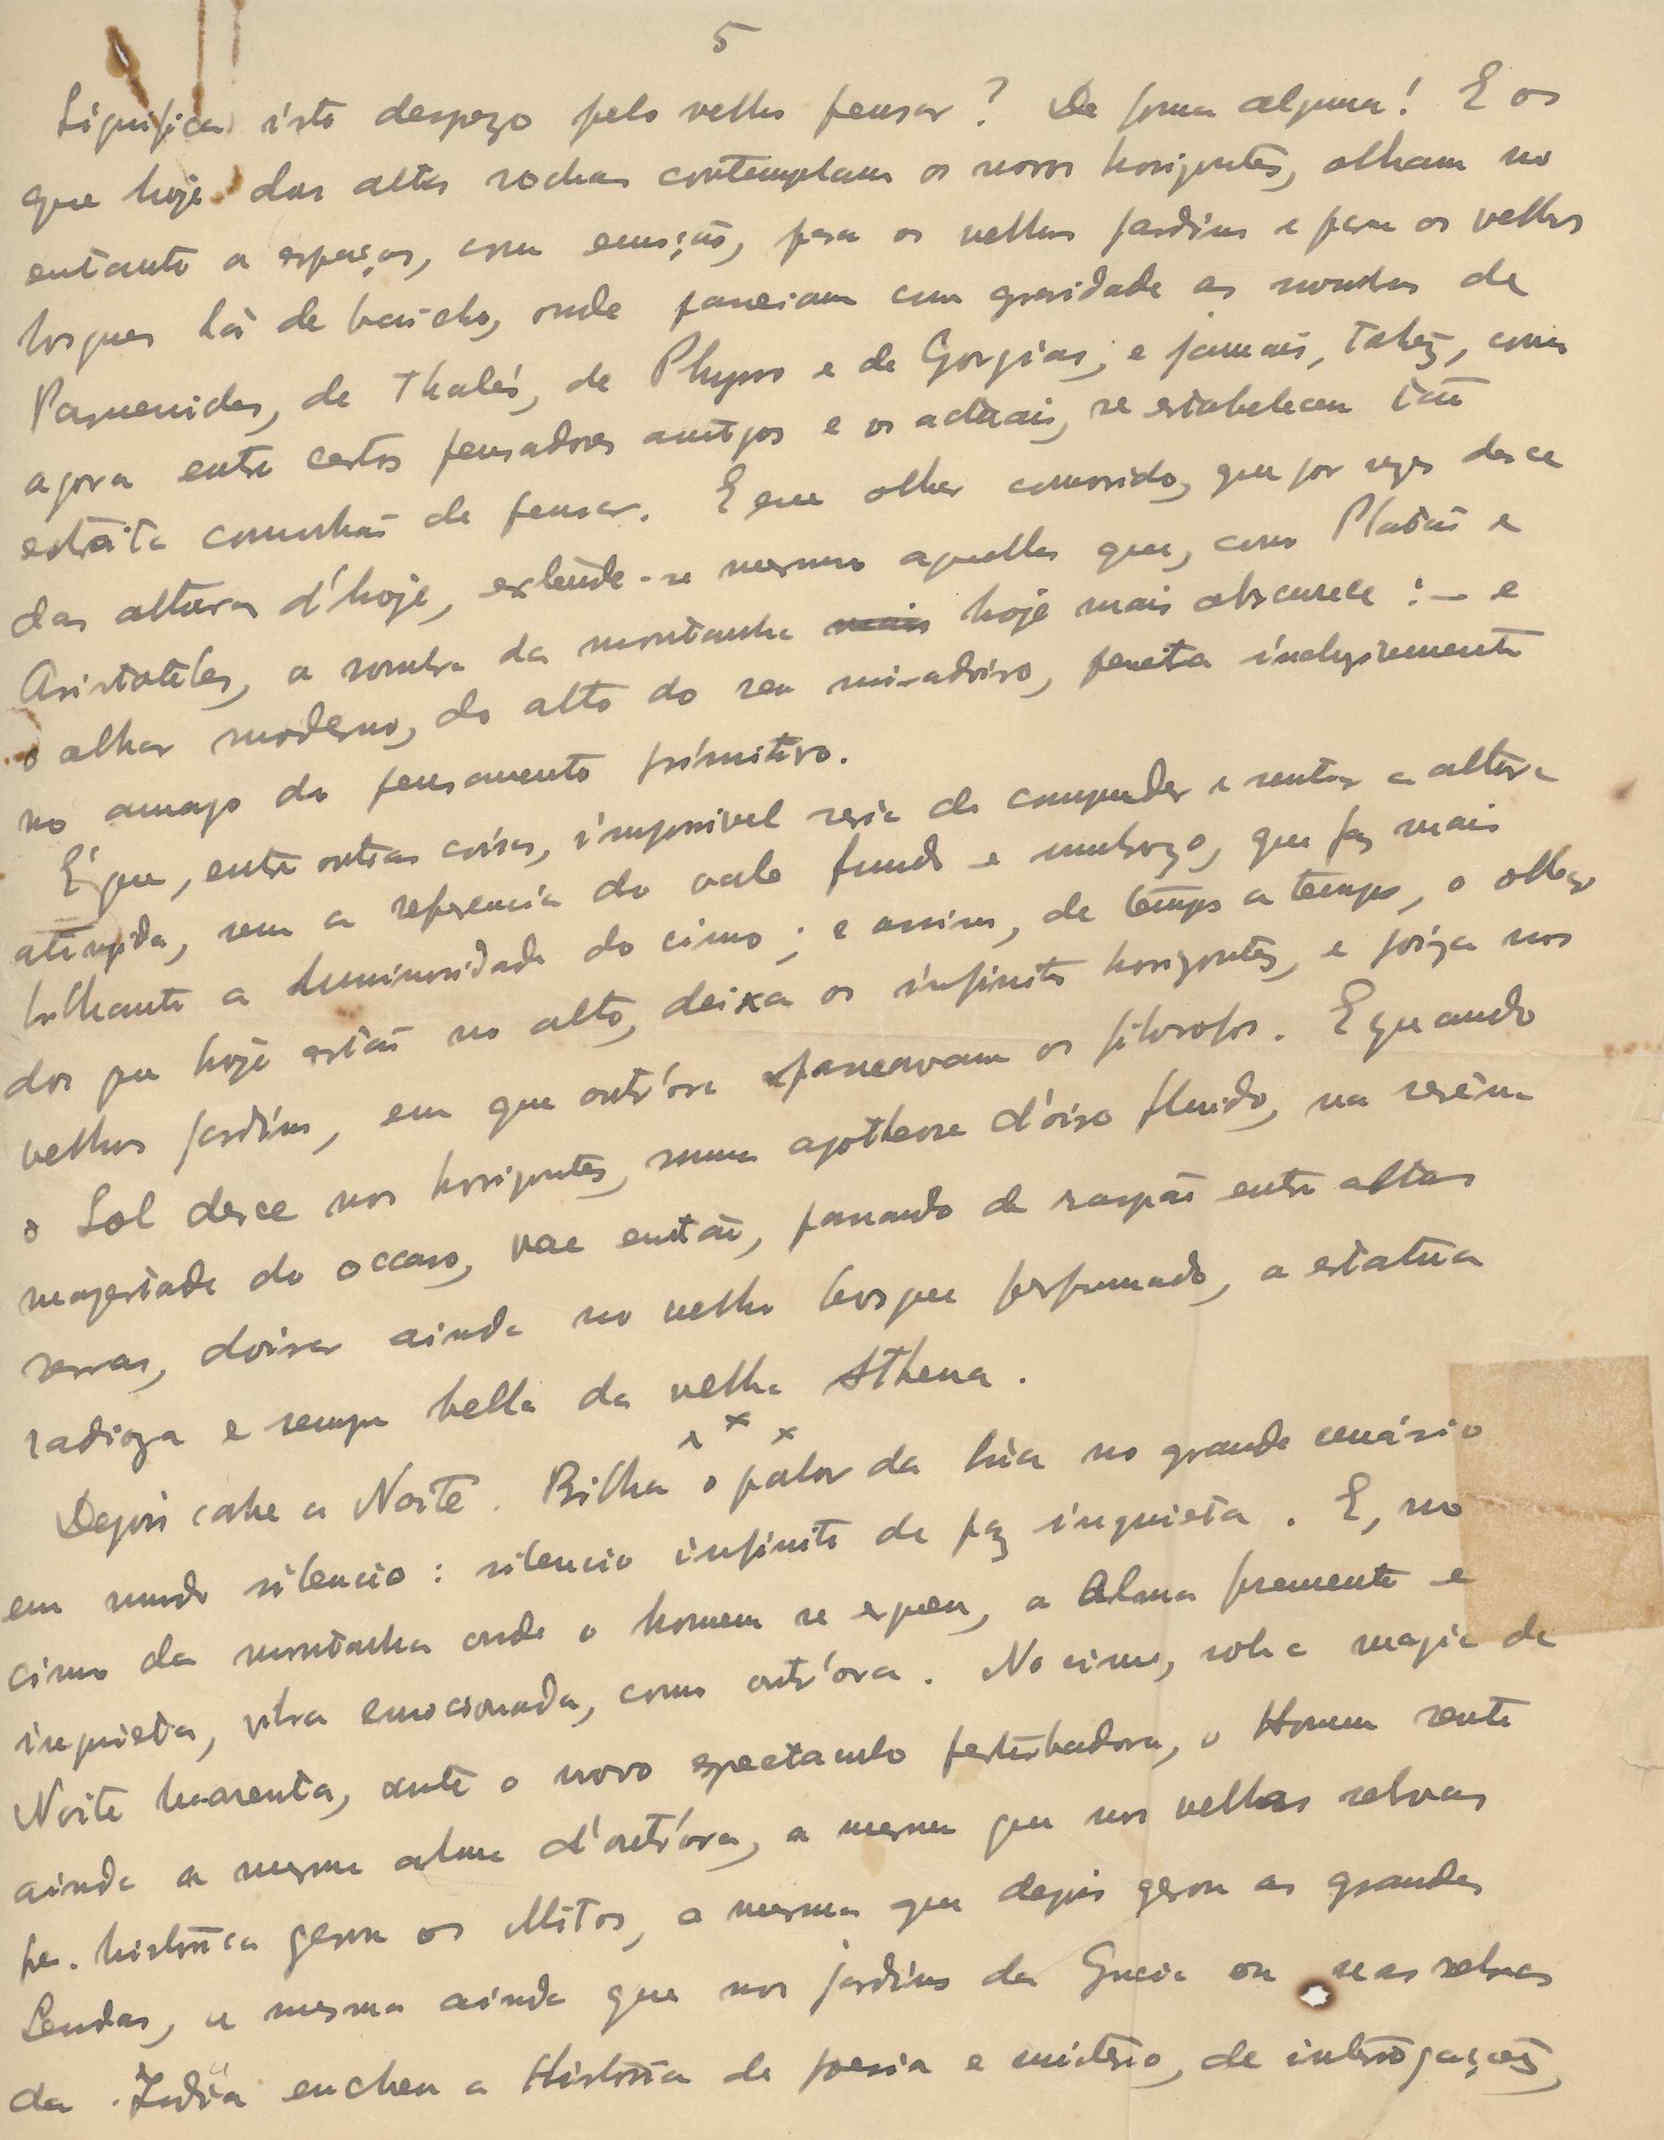 5
Significa isto desprezo pelo velho pensar? De forma alguma! E os
que hoje das altas rochas contemplam os novos horizontes, olham no
entanto a espaços, com emoção, para os velhos jardins e para os velhos
bosques lá de baicho, onde passeiam com gravidade as sombras de
Parmenides, de Thalés, de e de Gorgias; e jamais, talvez, como
agora entre certos pensadores antigos e os actuais, se estabeleceu tão
estreita comunhão de pensar. E esse olhar comovido, que por vezes desce
das alturas d'hoje, extende-se mesmo aquelles que, como Platão e
Aristoteles, a sombra da montanha mais hoje mais obscurece: — e
o olhar moderno, do alto do seu miradoiro, penetra
no amago do pensamento primitivo.
É que, entre outras coisas, impossivel seria de comprehender e sentir a altura
atingida, sem a referencia do vale fundo e umbrozo, que faz mais
brilhante a luminosidade do cimo; e assim, de tempos a tempos, o olhar
dos que hoje estão no alto, deixa os infinitos horizontes, e poiza nos
velhos jardins, em que outr'ora passeavam os filosofos. E quando
o Sol desce nos horizontes, numa apotheose d'oiro fluido, na serêna
magestade do occaso, vae então, passando de raspão entre altas
serras, doirar ainda no velho bosque perfumado, a estatua
radioza e sempre bella da velha Athena.
x x x
Depois cahe a Noite. Brilha o palor da lua no grande cenário
em mudo silencio: silencio infinito de paz inquieta. E, no
cimo da montanha onde o homem se ergueu, a Alma fremente e
inquieta, vibra emocionada, como outr'ora. No cimo, sob a magia da
Noite luarenta, ante o novo espectaculo perturbador, o Homem sente
ainda a mesma alma d'outr'ora, a mesma que nas velhas selvas
pre-historica gerou os Mitos, a mesma que depois gerou as grandes
Lendas, a mesma ainda que nos jardins da Grecia ou nas selvas
da India encheu a Historia de poesia e misterio, de interrogações,